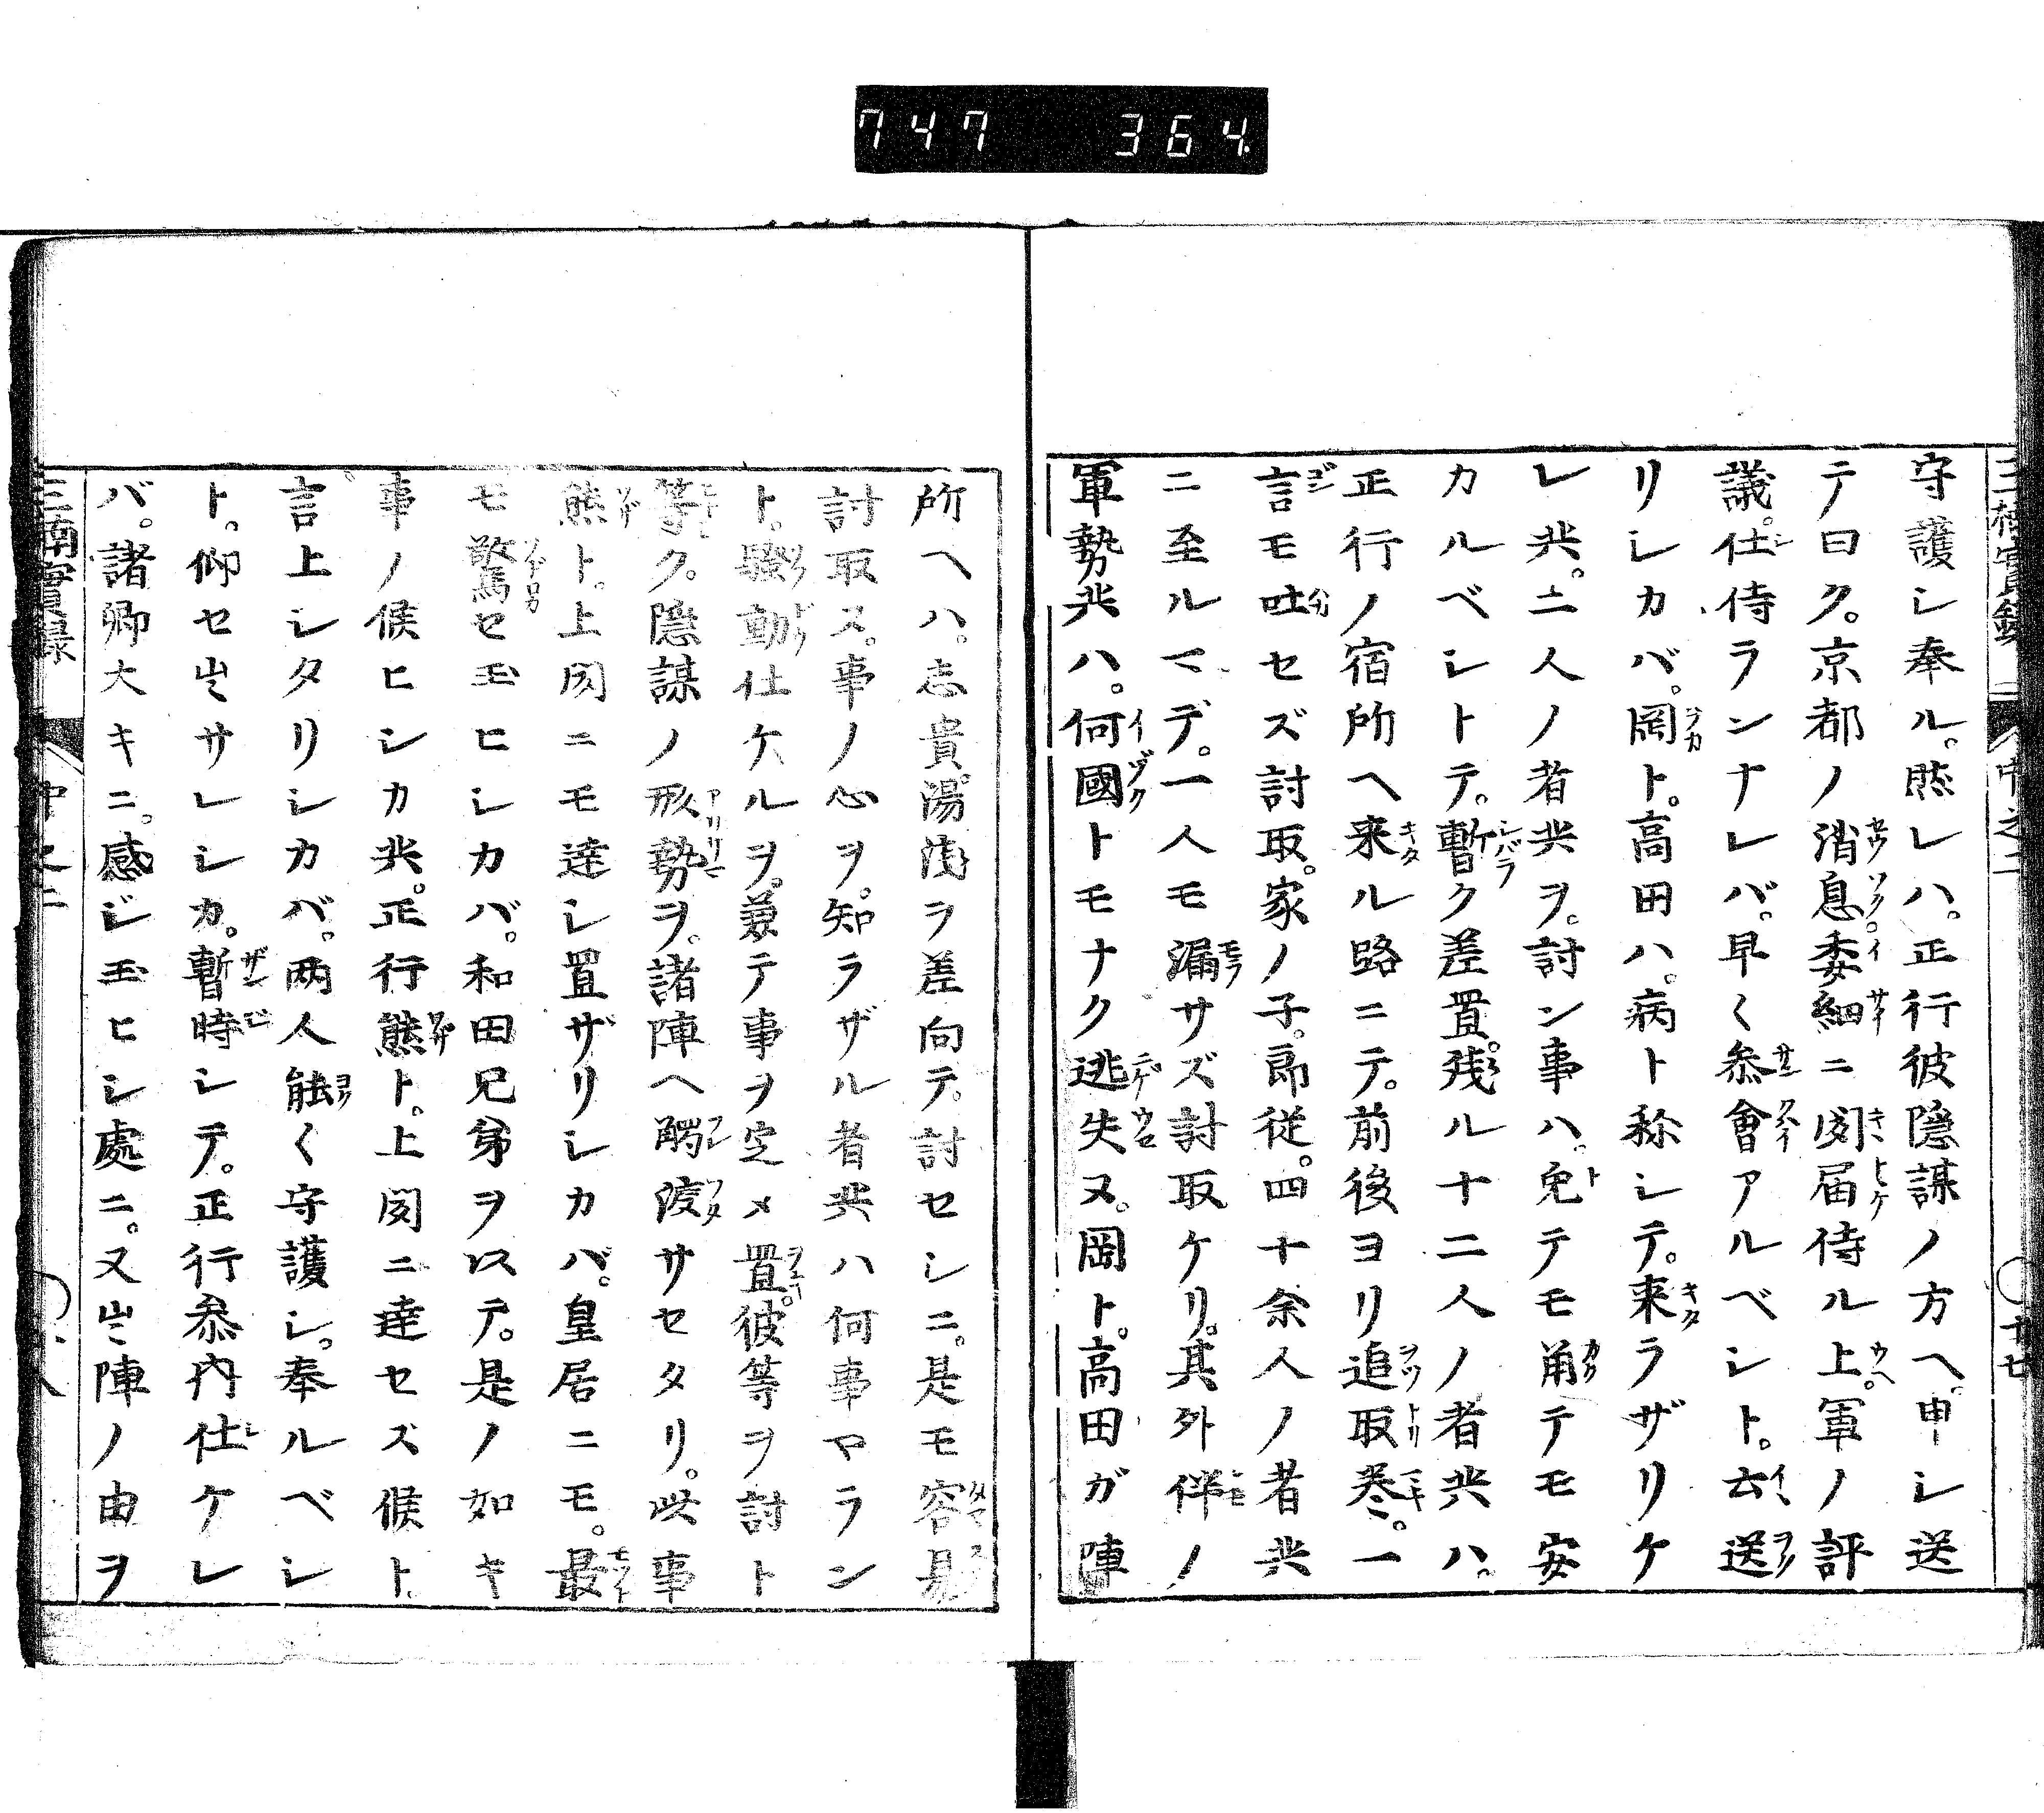 747 364
守護シ奉ル。然レハ。正行彼隠謀ノ方ヘ。申シ送
テ曰ク。京都ノ消息。委細ニ聞届侍ル上。軍ノ評
議。仕侍ランナレバ。早く參會アルベシト。云送
リシカバ。岡ト。高田ハ。病ト称シテ。来ラザリケ
レ共。二人ノ者共ヲ。討ン事ハ。兔テモ角テモ安
カルベシトテ。暫ク差置。残ル十二人ノ者共ハ。
正行ノ宿所ヘ来ル路ニテ。前後ヨリ追取巻。一
言モ吐セズ討取。家ノ子。郎従。四十余人ノ者共
ニ至ルマデ。一人モ漏サズ討取ケリ。其外伴ノ
軍勢共ハ。何國トモナク逃失ヌ。岡ト。高田ガ陣
所ヘハ。志貴。湯浅ヲ差向テ。討セシニ。是モ容易
討取ヌ。事ノ心ヲ。知ラザル者共ハ何事ヤラン
ト。騒動仕ケルヲ。兼テ事ヲ定メ置。彼等ヲ討ト
等ク。隠謀ノ形勢ヲ。諸陣ヘ觸渡サセタリ。此事
熊ト。上聞ニモ達シ置ザリシカバ。皇居ニモ。最
モ驚セ玉ヒシカバ。和田兄弟ヲ以テ。是ノ如キ
事ノ候ヒシカ共。正行熊ト。上聞ニ達セズ候ト。
言上シタリシカバ。両人能く守護シ。奉ルベシ
ト。仰セ出サレシカ。暫時シテ。正行參内仕ケレ
バ。諸卿大キニ。感ジ玉ヒシ處ニ。又出陣ノ由ヲ